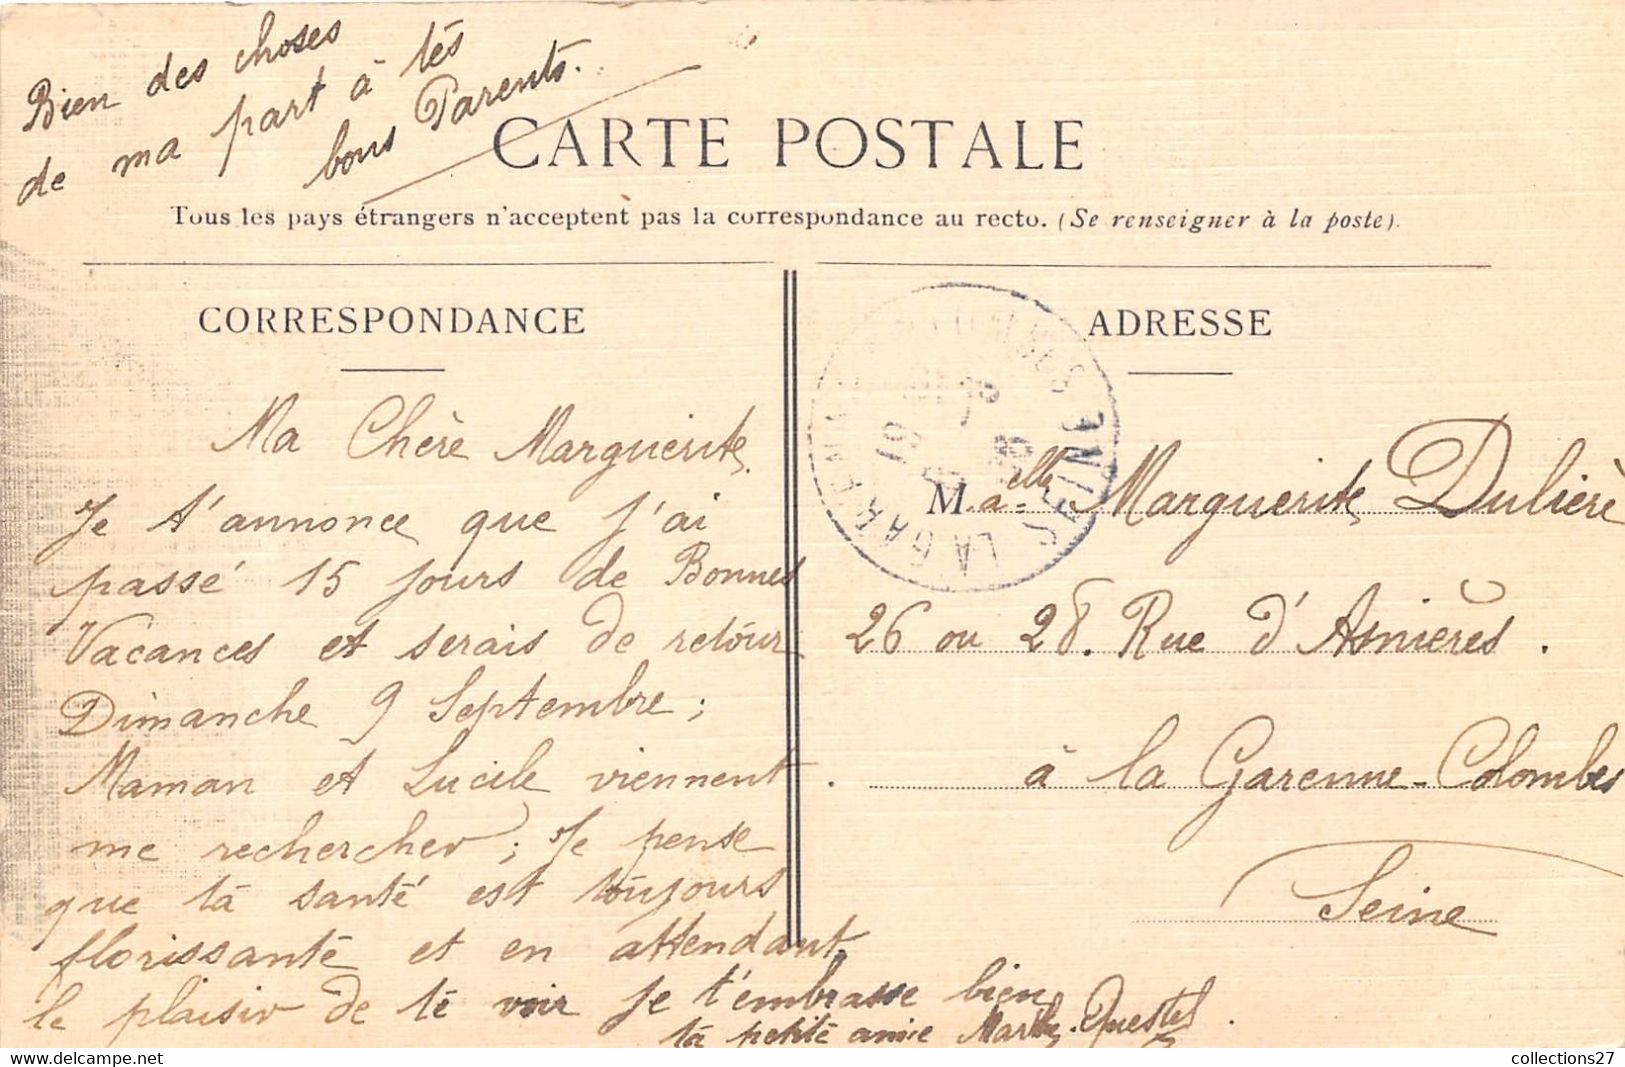 Bien des choses
de ma part à tés
bons Parents.
CARTE POSTALE
Tous les pays étrangers n'acceptent pas la correspondance au recto. (Se renseigner à la poste).
CORRESPONDANCE
Ma Chère Marguerite,
Je t'annonce que j'ai
passé 15 jours de Bonnes
Vacances et serais de retour
Dimanche 9 Septembre ;
Maman et Lucile viennent
me rechercher ; Je pense
que ta santé est toujours
florissante et en attendant
le plaisir de te voir je t'embrasse bien
ta petite amie Marthe Questel.
ADRESSE
LA GARENNE-COLOMBES
SEINE
Melle Marguerite Dulière
26 ou 28. Rue d'Asnières.
à la Garenne-Colombes
Seine
collections27